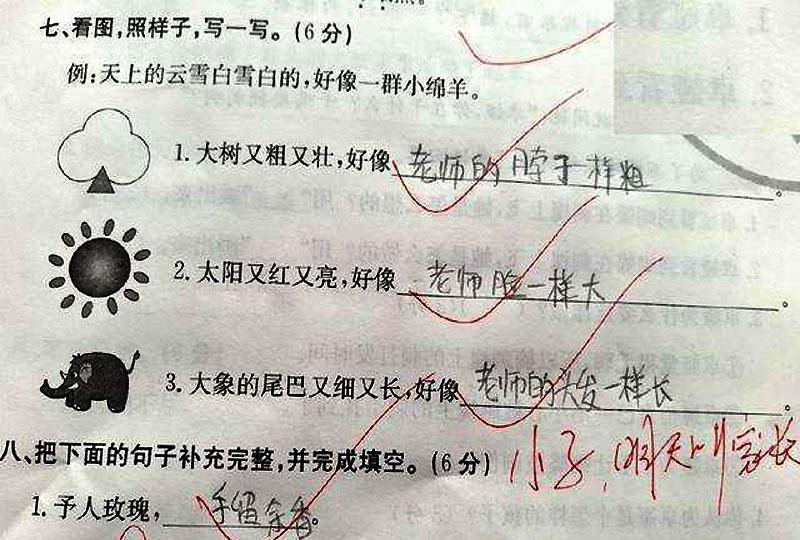 七、看图,照样子,写一写。(6分)
例:天上的云雪白雪白的,好像一群小绵羊。
1.大树又粗又壮,好像老师的脖子一样粗。
2.太阳又红又亮,好像老师脸一样大。
3.大象的尾巴又细又长,好像老师的头发一样长。
小子,明天叫家长
八、把下面的句子补充完整,并完成填空。(6分)
1.予人玫瑰,手留余香。